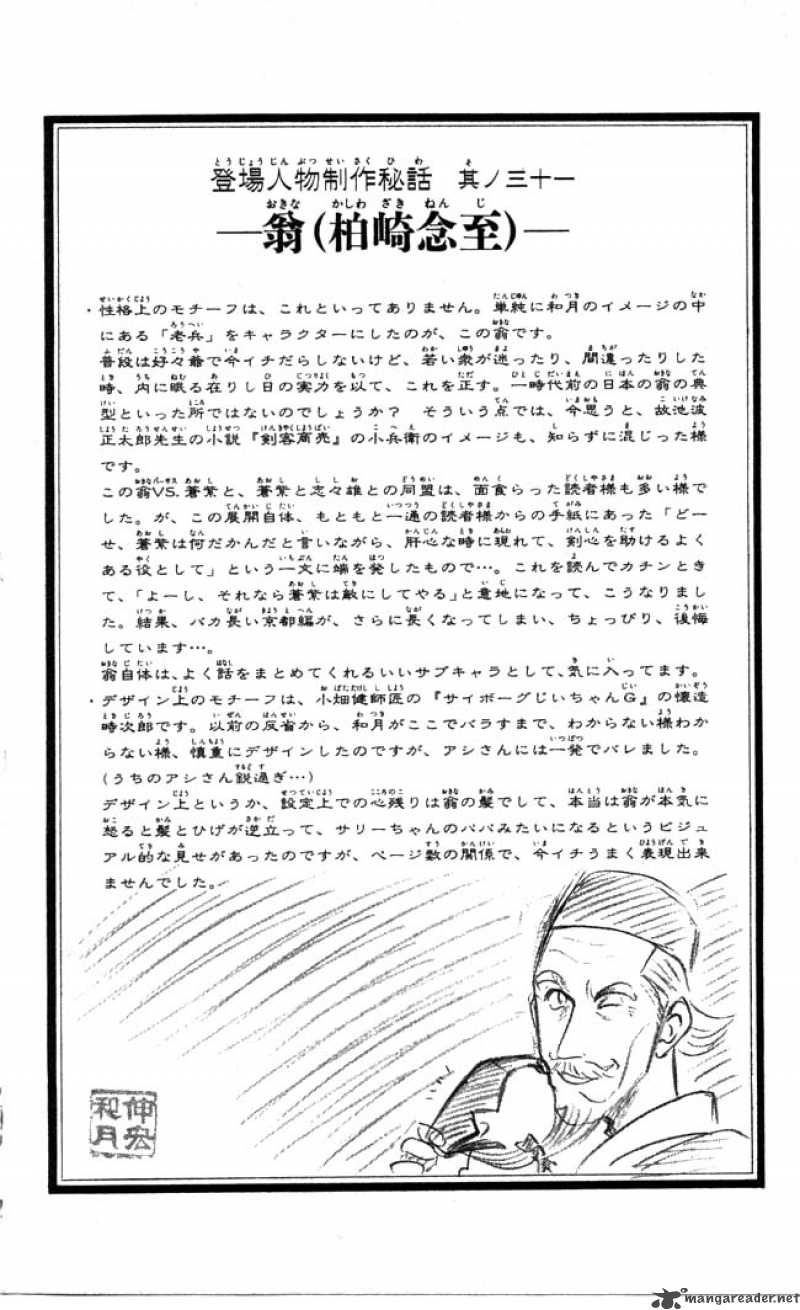 登場人物制作秘話　其ノ三十一
―翁（柏崎念至）―
・性格上のモチーフは、これといってありません。単純に和月のイメージの中
にある「老兵」をキャラクターにしたのが、この翁です。
普段は好々爺で今イチだらしないけど、若い衆が迷ったり、間違ったりした
時、内に眠る在りし日の実力を以て、これを正す。一時代前の日本の翁の典
型といった所ではないのでしょうか？　そういう点では、今思うと、故池波
正太郎先生の小説『剣客商売』の小兵衛のイメージも、知らずに混じった様
です。
この翁VS.蒼紫と、蒼紫と志々雄との同盟は、面食らった読者様も多い様で
した。が、この展開自体、もともと一通の読者様からの手紙にあった「どー
せ、蒼紫は何だかんだと言いながら、肝心な時に現れて、剣心を助けるよく
ある役として」という一文に端を発したもので…。これを読んでカチンとき
て、「よーし、それなら蒼紫は敵にしてやる」と意地になって、こうなりまし
た。結果、バカ長い京都編が、さらに長くなってしまい、ちょっぴり、後悔
しています…。
翁自体は、よく話をまとめてくれるいいサブキャラとして、気に入ってます。
・デザイン上のモチーフは、小畑健師匠の『サイボーグじいちゃんG』の懐造
時次郎です。以前の反省から、和月がここでバラすまで、わからない様わか
らない様、慎重にデザインしたのですが、アシさんには一発でバレました。
（うちのアシさん鋭過ぎ…）
デザイン上というか、設定上での心残りは翁の髪でして、本当は翁が本気に
怒ると髪とひげが逆立って、サリーちゃんのパパみたいになるというビジュ
アル的な見せがあったのですが、ページ数の関係で、今イチうまく表現出来
ませんでした。
伸宏
和月
mangareader.net